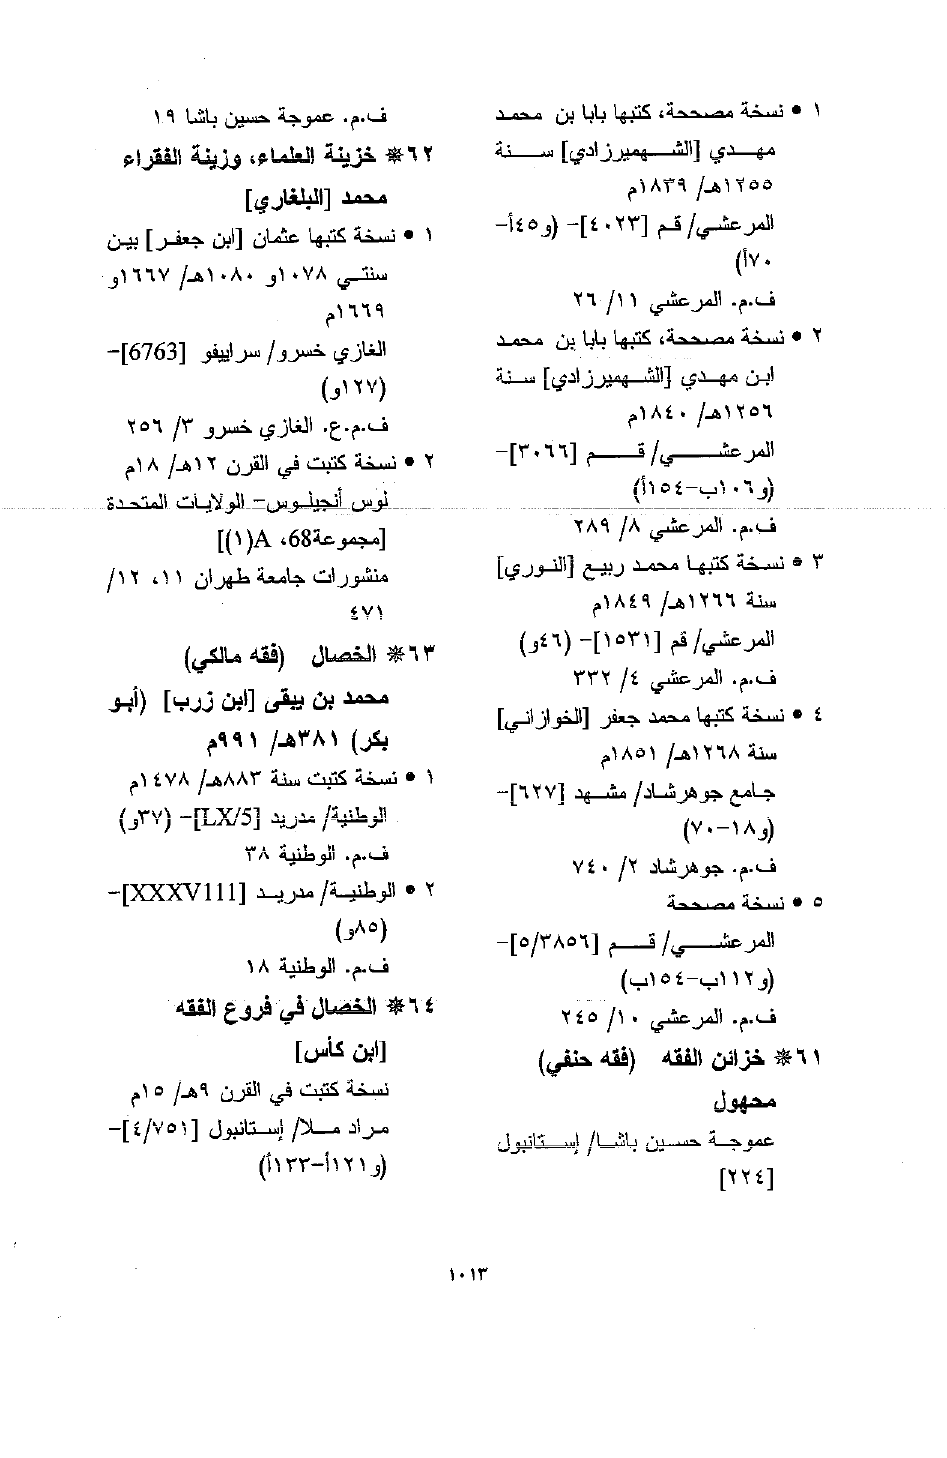 ١ • نسخة مصححة، كتبها بابا بن محمد
مهدي [الشهميرزادي] سنة
١٢٥٥هـ/ ١٨٣٩م
المرعشي/ قم [٤٠٢٣]- (و٤٥أ-
٧٠أ)
ف.م. المرعشي ١١/ ٢٦
٢ • نسخة مصححة، كتبها بابا بن محمد
ابن مهدي [الشهميرزادي] سنة
١٢٥٦هـ/ ١٨٤٠م
المرعشي/ قم [٣٠٦٦]-
(و١٠٦ب-١٥٤أ)
ف.م. المرعشي ٨/ ٢٨٩
٣ • نسخة كتبها محمد ربيع [النوري]
سنة ١٢٦٦هـ/ ١٨٤٩م
المرعشي/ قم [١٥٣١]- (٤٦و)
ف.م. المرعشي ٤/ ٣٣٢
٤ • نسخة كتبها محمد جعفر [الخوازاني]
سنة ١٢٦٨هـ/ ١٨٥١م
جامع جوهرشاد/ مشهد [٦٢٧]-
(و١٨-٧٠)
ف.م. جوهرشاد ٢/ ٧٤٠
٥ • نسخة مصححة
المرعشي/ قم [٥/٣٨٥٦]-
(و١١٢ب-١٥٤ب)
ف.م. المرعشي ١٠/ ٢٤٥
٦١* خزائن الفقه (فقه حنفي)
مجهول
عموجة حسين باشا/ إستانبول
[٢٢٤]
ف.م. عموجة حسين باشا ١٩
٦٢* خزينة العلماء، وزينة الفقراء
محمد [البلغاري]
١ • نسخة كتبها عثمان [ابن جعفر] بين
سنتي ١٠٧٨و ١٠٨٠هـ/ ١٦٦٧و
١٦٦٩م
الغازي خسرو/ سراييفو [6763]-
(١٢٧و)
ف.م.ع. الغازي خسرو ٣/ ٢٥٦
٢ • نسخة كتبت في القرن ١٢هـ/ ١٨م
لوس أنجيلوس- الولايات المتحدة
[مجموعة68، A(١)]
منشورات جامعة طهران ١١، ١٢/
٤٧١
٦٣* الخصال (فقه مالكي)
محمد بن يبقى [ابن زرب] (أبو
بكر) ٣٨١هـ/ ٩٩١م
١ • نسخة كتبت سنة ٨٨٣هـ/ ١٤٧٨م
الوطنية/ مدريد [LX/5]- (٣٧و)
ف.م. الوطنية ٣٨
٢ • الوطنية/ مدريد [XXXV111]-
(٨٥و)
ف.م. الوطنية ١٨
٦٤* الخصال في فروع الفقه
[ابن كأس]
نسخة كتبت في القرن ٩هـ/ ١٥م
مراد ملا/ إستانبول [٤/٧٥١]-
(و١٢١أ-١٣٣أ)
١٠١٣